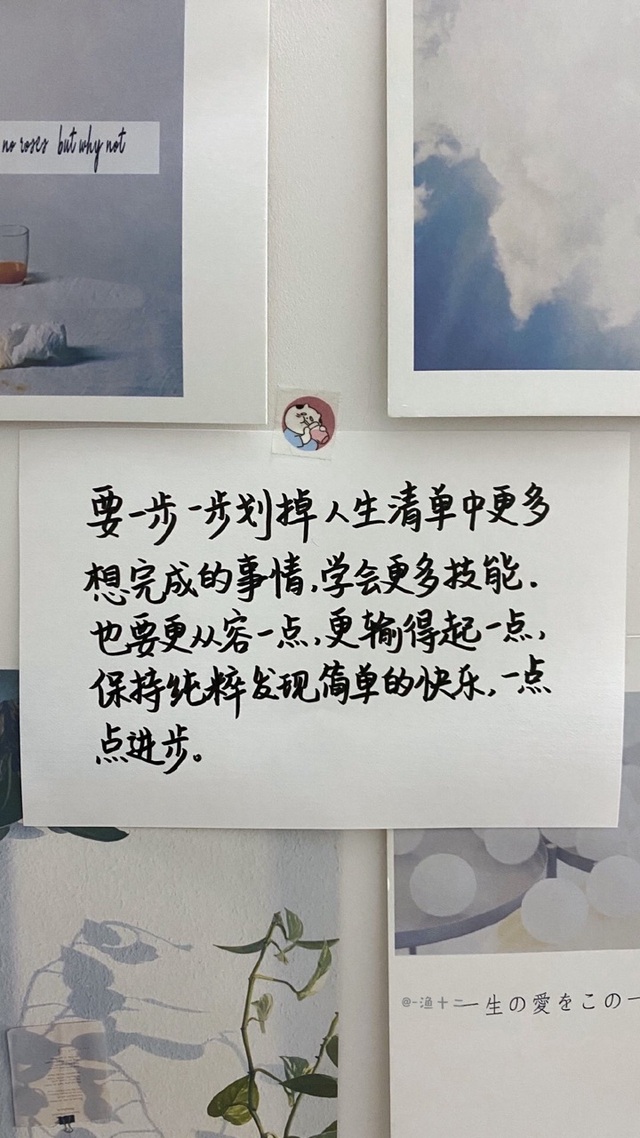 no roses but why not
要一步一步划掉人生清单中更多
想完成的事情,学会更多技能.
也要更从容一点,更输得起一点,
保持纯粹发现简单的快乐,一点
点进步。
@一渔十二
一生の愛をこの一